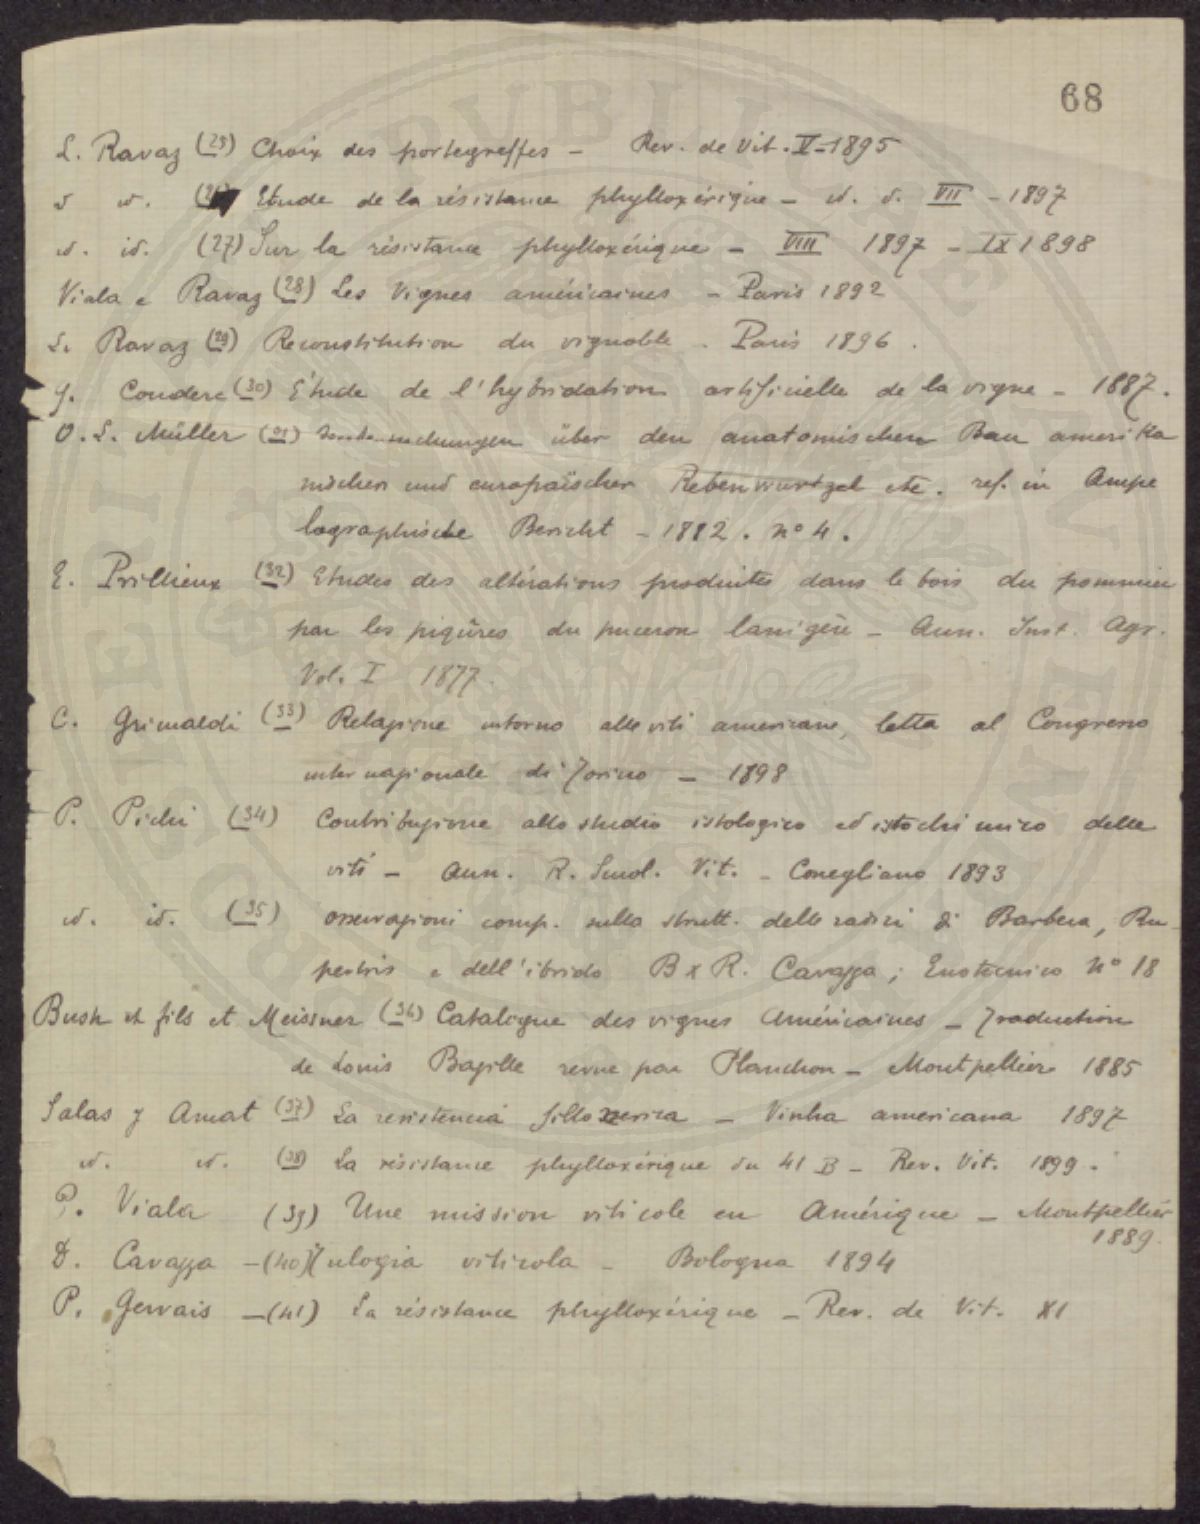 68
L. Ravaz (25) Choix des portegreffes – Rev. de Vit. V–1895
id. id. (26) Etude de la résistance phylloxérique – id. id. VII – 1897
id. id. (27) Sur la résistance phylloxérique – VIII 1897 – IX 1898
Viala e Ravaz (28) Les Vignes américaines – Paris 1892
L. Ravaz (29) Reconstitution du vignoble – Paris 1896.
G. Couderc (30) Étude de l'hybridation artificielle de la vigne – 1887.
O. L. Müller (31) über den anatomischen Bau amerika
nischen und europaïscher Rebenwurtzel etc. ref. in Ampe
lographische Bericht – 1882. n° 4.
E. Prillieux (32) Etudes des altérations produites dans le bois du pommier
par les piqûres du puceron lanigère – Ann. Inst. Agr.
Vol. I 1877.
C. Grimaldi (33) Relazione intorno alle viti americane, letta al Congresso
internazionale di Torino – 1898
P. Pichi (34) Contribuzione allo studio istologico ed istochimico delle
viti – Ann. R. Scuol. Vit. – Conegliano 1893
id. id. (35) osservazioni comp. sulla strutt. delle radici di Barbera, Ru-
pestris e dell'ibrido B x R. Cavazza; Enotecnico n° 18
Bush et fils et Meissner (36) Catalogue des vignes Américaines – Traduction
de Louis Bazille revue par Planchon – Montpellier 1885
Salas y Amat (37) La resistencia filloxerica – Vinha americana 1897
id. id. (38) La résistance phylloxérique du 41 B – Rev. Vit. 1899.
P. Viala (39) Une mission viticole en Amérique – Montpellier
1889.
D. Cavazza – (40) viticola – Bologna 1894
P. Gervais – (41) La résistance phylloxérique – Rev. de Vit. XI